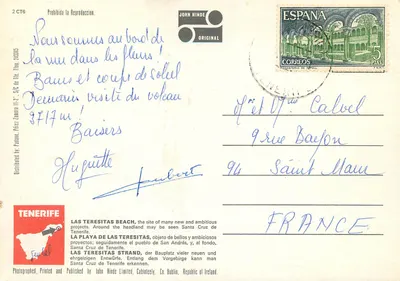 2 CT6
Prohibida la Reproduccion.
JOHN HINDE
ORIGINAL
ESPAÑA
CORREOS
Nous sommes au bord de
la mer dans les fleurs!
Bains et coups de soleil
Demain visite du volcan
3717m!
Baisers
Huguette
Mr et Mme Calvel
9 rue Bayon
94 Saint Maur
FRANCE
TENERIFE
LAS TERESITAS BEACH, the site of many new and ambitious
projects. Around the handland may be seen Santa Cruz de
Tenerife.
LA PLAYA DE LAS TERESITAS, objeto de bellos y ambiciosos
proyectos; seguidamente al pueblo de San Andrés, y, al fondo,
Santa Cruz de Tenerife.
LAS TERESITAS STRAND, der Bauplatz vieler neuen und
ehrgeizigen Entwürfe. Entlang dem Vorgebirge kann man
Santa Cruz de Tenerife erkennen.
Photographed, Printed and Published by John Hinde Limited, Cabinteely, Co Dublin, Republic of Ireland.